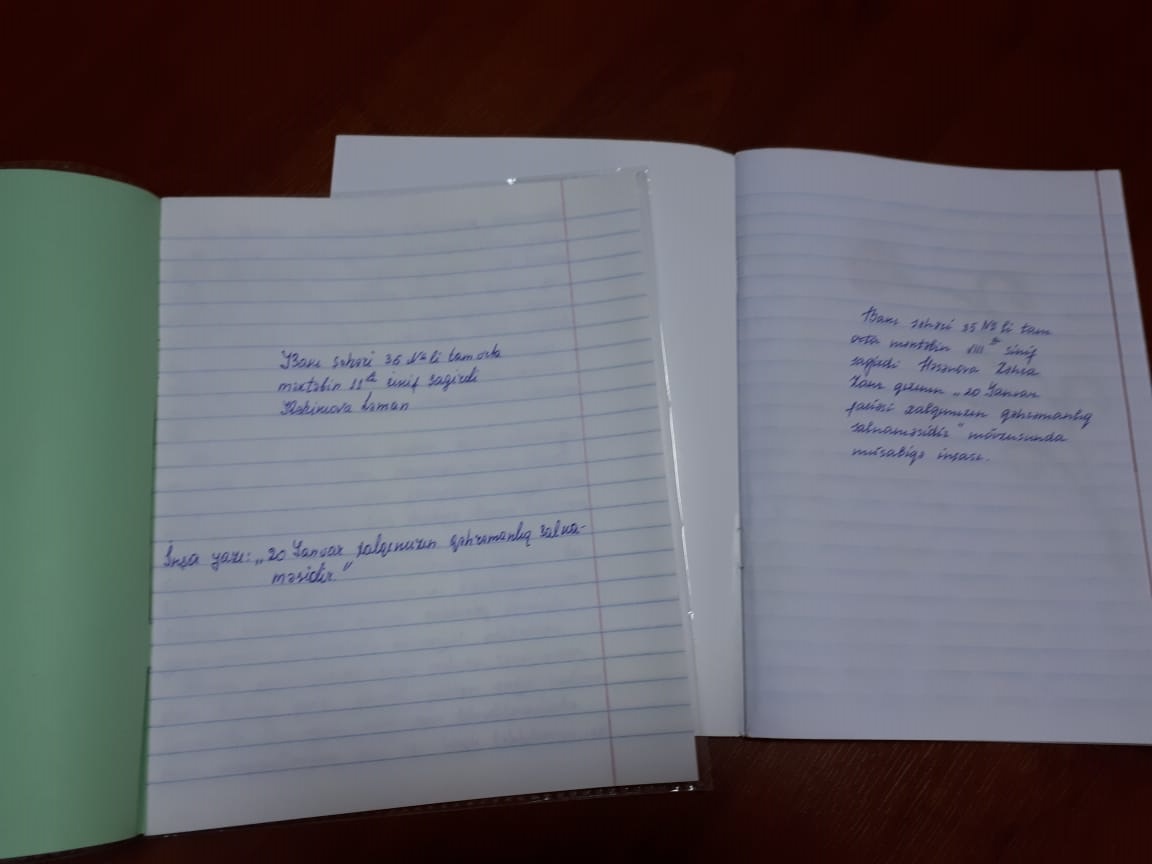 Bakı şəhəri 35 №li tam orta
məktəbin 11ᵈ sinif şagirdi
Kərimova Ləman
İnşa yazı: „20 Yanvar xalqımızın qəhrəmanlıq salna-
məsidir.”
Bakı şəhəri 35 №li tam
orta məktəbin VIII sinif
şagirdi Həsənova Zəhra
qızının „20 Yanvar
faciəsi xalqımızın qəhrəmanlıq
salnaməsidir” mövzusunda
müsabiqə inşası.